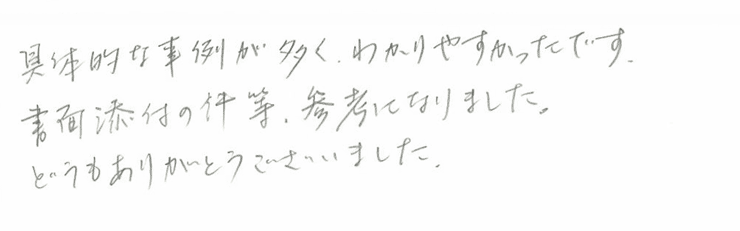 具体的な事例が多く、わかりやすかったです.
書面添付の件等、参考になりました。
どうもありがとうございました.